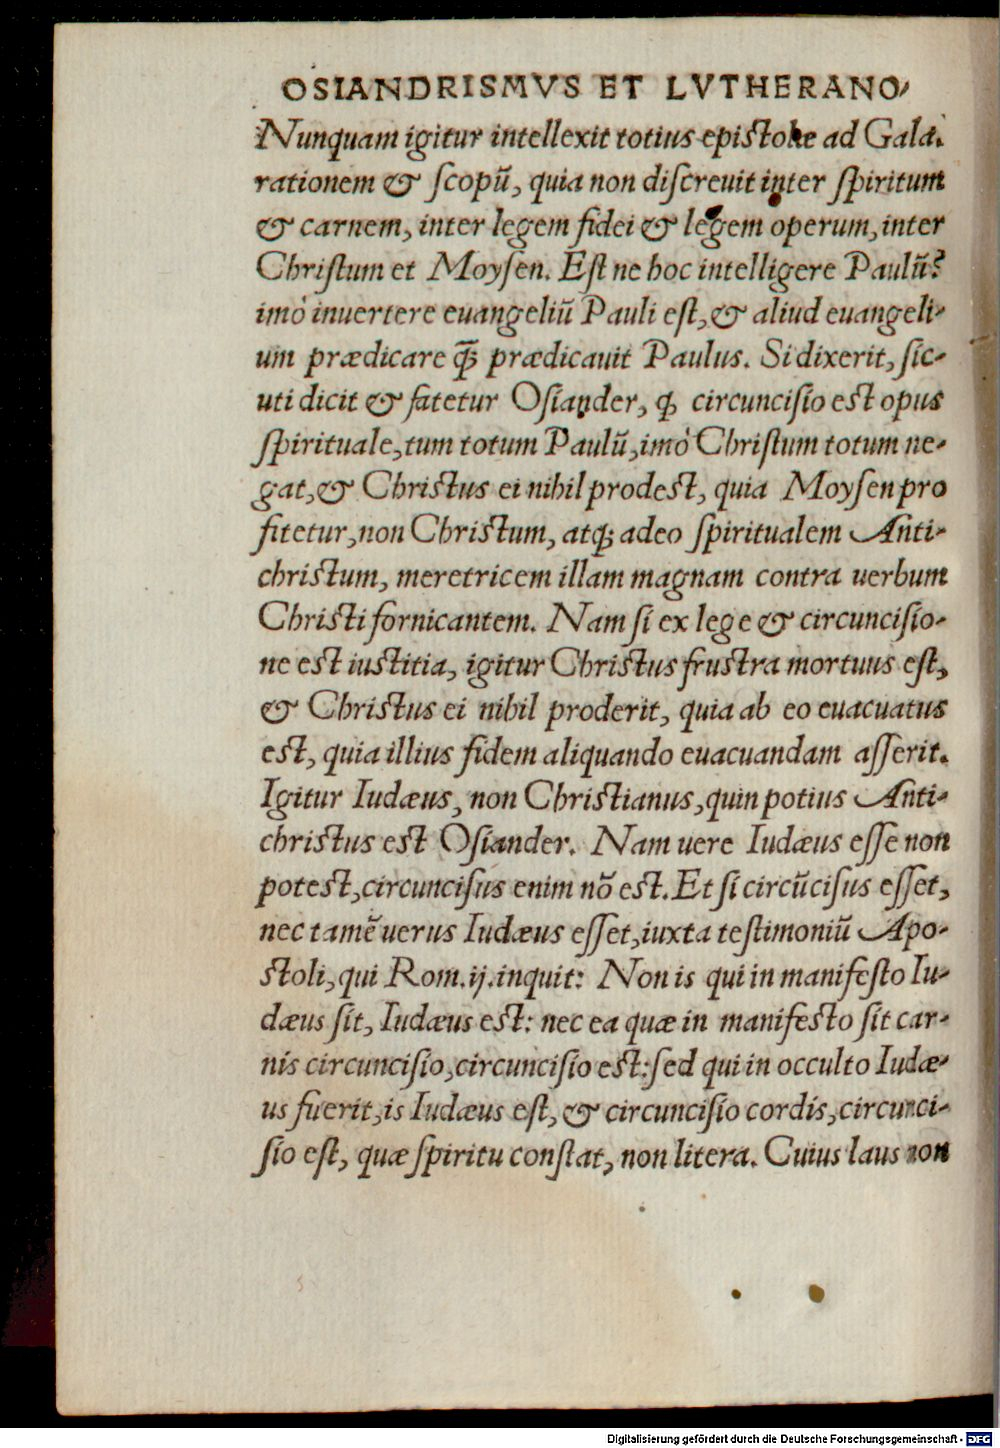 OSIANDRISMVS ET LVTHERANO-
Nunquam igitur intellexit totius epistolæ ad Gala.
rationem & scopũ, quia non discreuit inter spiritum
& carnem, inter legem fidei & legem operum, inter
Christum et Moysen. Est ne hoc intelligere Paulũ?
imò inuertere euangeliũ Pauli est, & aliud euangeli-
um prædicare q̃ꝫ prædicauit Paulus. Si dixerit, sic-
uti dicit & fatetur Osiander, ꝙ circuncisio est opus
spirituale, tum totum Paulũ, imò Christum totum ne-
gat, & Christus ei nihil prodest, quia Moysen pro
fitetur, non Christum, atqꝫ adeo spiritualem Anti-
christum, meretricem illam magnam contra uerbum
Christi fornicantem. Nam si ex lege & circuncisio-
ne est iustitia, igitur Christus frustra mortuus est,
& Christus ei nihil proderit, quia ab eo euacuatus
est, quia illius fidem aliquando euacuandam asserit.
Igitur Iudæus, non Christianus, quin potius Anti-
christus est Osiander. Nam uere Iudæus esse non
potest, circuncisus enim nõ est. Et si circũcisus esset,
nec tamẽ uerus Iudæus esset, iuxta testimoniũ Apo-
stoli, qui Rom. ij. inquit: Non is qui in manifesto Iu-
dæus sit, Iudæus est: nec ea quæ in manifesto sit car-
nis circuncisio, circuncisio est: sed qui in occulto Iudæ-
us fuerit, is Iudæus est, & circuncisio cordis, circunci-
sio est, quæ spiritu constat, non litera. Cuius laus non
Digitalisierung gefördert durch die Deutsche Forschungsgemeinschaft - DFG